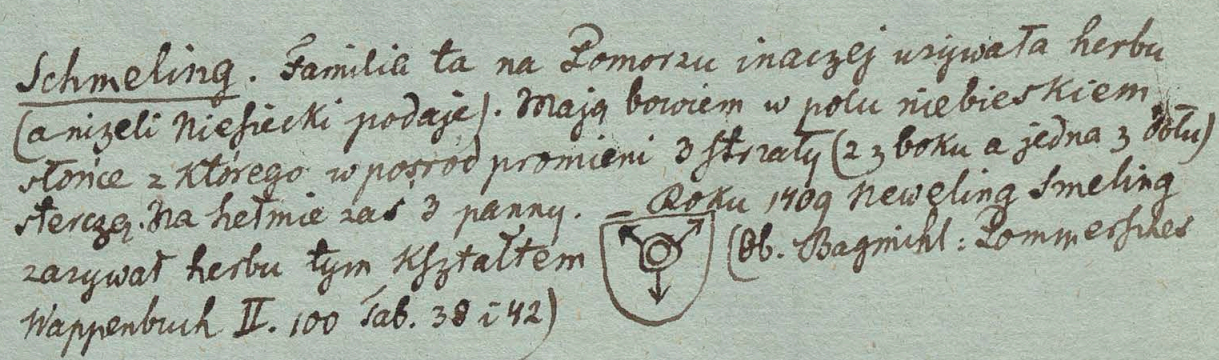 Schmeling. Familia ta na Pomorzu inaczej używała herbu
(aniżeli Niesiecki podaje). Mają bowiem w polu niebieskiem
słońce z którego wpośród promieni 3 strzały (2 z boku a jedna z dołu)
sterczą. Na hełmie zaś 3 panny. — Roku 1409 Neweling Smeling
zażywał herbu tym kształtem (Ob. Bagmihl: Pommersches
Wappenbuch II. 100 Tab. 38 i 42)